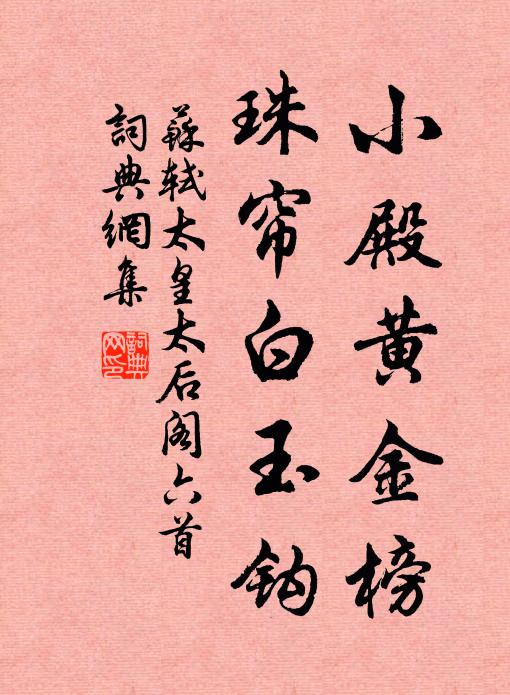 小殿黄金榜
珠帘白玉钩
蘇軾太皇太后阁六首
詞典網集
詞典网印